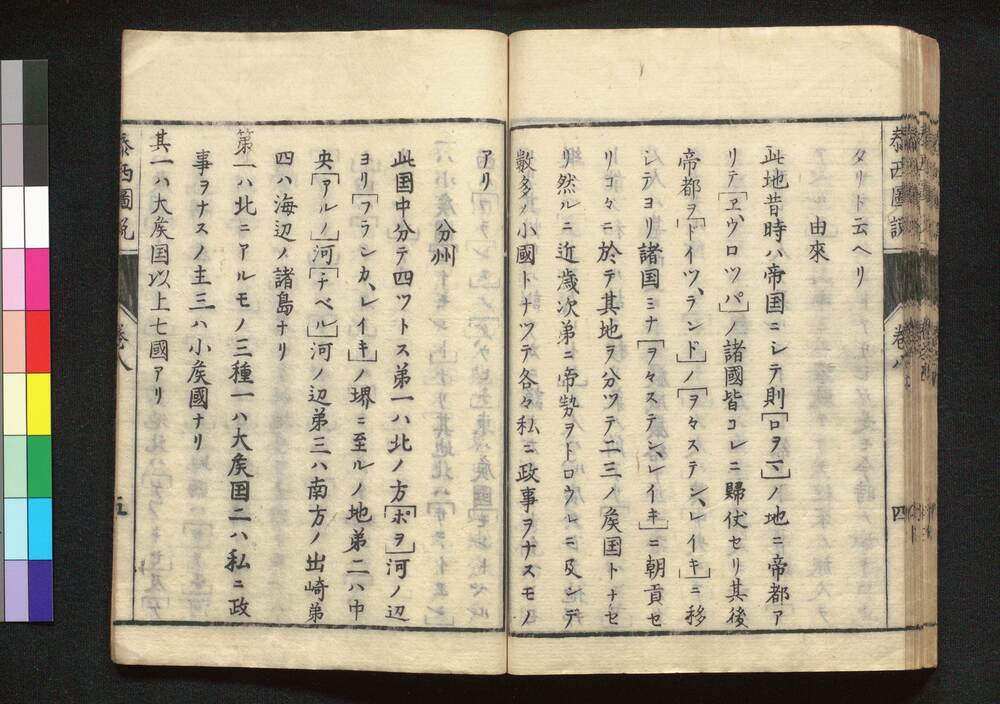 泰西圖説
巻八
四
タリト云ヘリ
由來
此地昔時ハ帝国ニシテ則［ロヲマ］ノ地ニ帝都ア
リテ［ヱウロツパ］ノ諸國皆コレニ歸伏セリ其後
帝都ヲ［ドイツ、ランド］ノ［ヲヽステン、レイキ］ニ移
シテヨリ諸国ミナ［ヲヽステン、レイキ］ニ朝貢セ
リコヽニ於テ其地ヲ分ツテ二三ノ矦国トナセ
リ然ルニ近歳次第ニ帝勢ヲトロウルニ及ンデ
數多ノ小國トナツテ各々私ニ政事ヲナスモノ
アリ
分州
此国中分テ四ツトス第一ハ北ノ方［ポヲ］河ノ辺
ヨリ［フランカ、レイキ］ノ堺ニ至ルノ地第二ハ中
央［アルノ］河［テベル］河ノ辺第三ハ南方ノ出崎第
四ハ海辺ノ諸島ナリ
第一ハ北ニアルモノ三種一ハ大矦国二ハ私ニ政
事ヲナスノ主三ハ小矦國ナリ
其一ハ大矦国以上七國アリ
泰西圖説
巻八
五